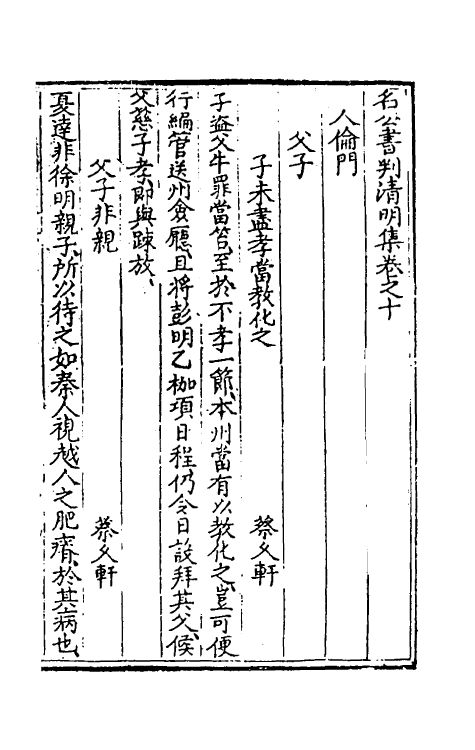 名公書判清明集卷之十
人倫門
父子
子未盡孝當教化之 蔡久軒
子盜父牛罪當笞至於不孝一節本州當有以教化之豈可便
行編管送州僉廳且將彭明乙枷項日程仍令日設拜其父候
父慈子孝即與踈放
父子非親 蔡久軒
夏達非徐明親子所以待之如秦人視越人之肥瘠於其病也